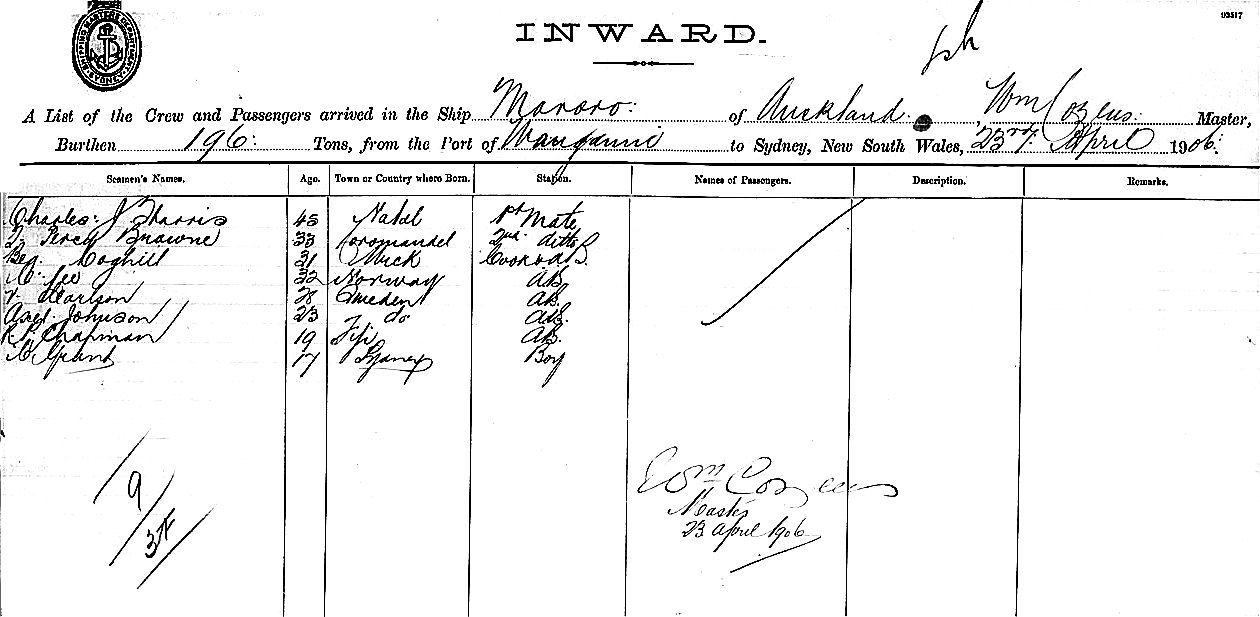 SHIPPING MASTER'S DEPARTMENT SYDNEY
93517
INWARD.
A List of the Crew and Passengers arrived in the Ship Mororo: of Auckland. , Wm Cozens. Master,
Burthen 196: Tons, from the Port of Wanganui to Sydney, New South Wales, 23rd April 1906:
Seamen's Names. Age. Town or Country where Born. Station. Names of Passengers. Description. Remarks.
Charles J Harris 45 Natal 1st Mate
Percy Browne 33 Coromandel 2nd ditto
Coghill 21 Wick Cook & S.
Lee 32 Norway AB.
Carlson 28 Sweden AB.
Axel Johnson 23 do AB.
Chapman 19 Fiji AB.
Grant 17 Sydney Boy
9
Wm Cozens
Master
23 April 1906